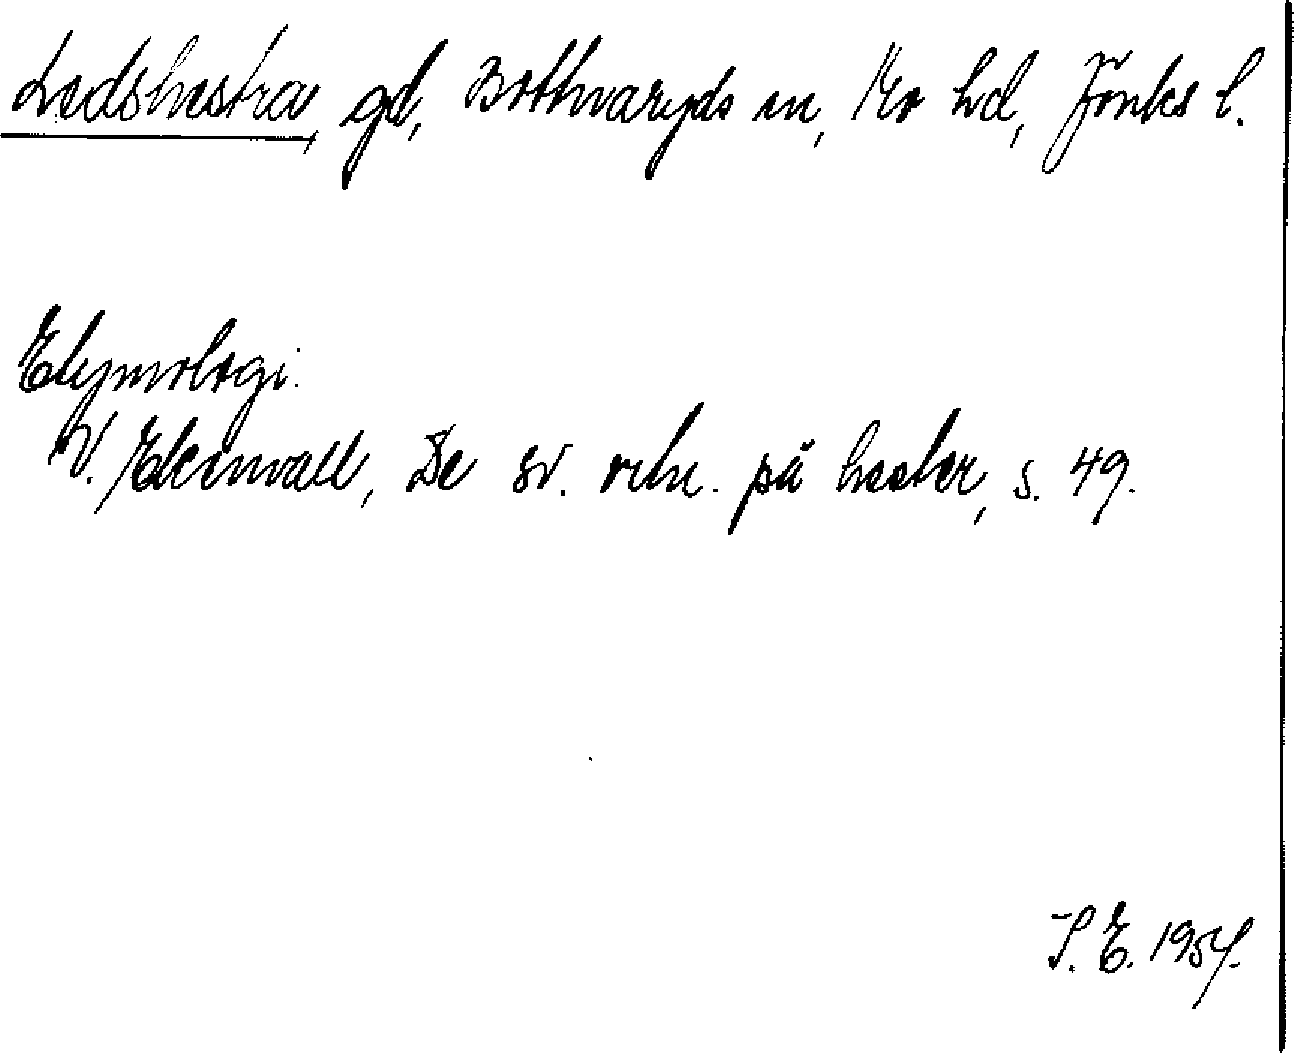 Ledshestra, gd, Bottnaryds sn, Mo hd, Jönks l.
Etymologi.
V. Ekenvall, De sv. ortn. på hester, s. 49.
S. E. 1954.